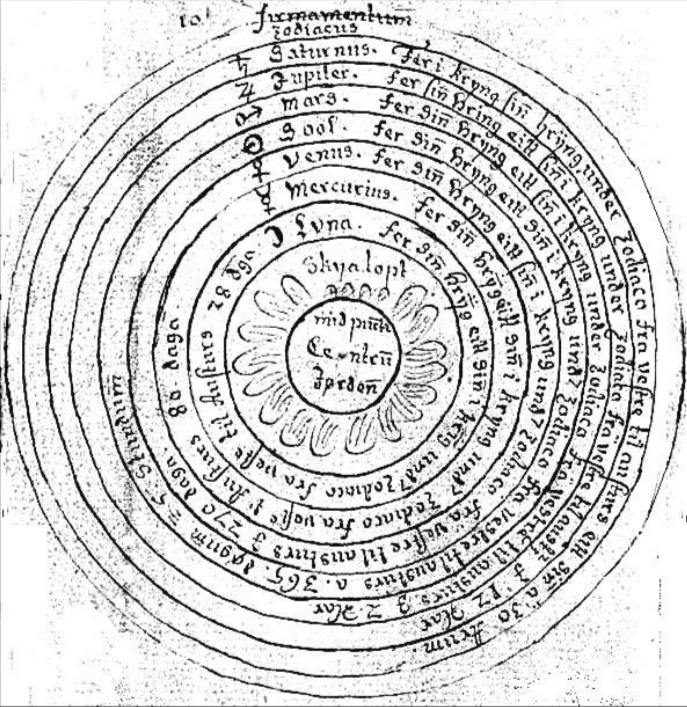 firmamentum
zodiacus
♄ Saturnus. Fer i kryng sin̄ hryng under Zodiaco fra vestre til austurs eitt sin̄ a 30 Arum.
♃ Jupiter. Fer sin̄ hring eitt sin̄ i kryng under Zodiaco fra vestre til austurs j 12 Aar
♂ Mars. Fer sin̄ hryng eitt sin̄ i kryng under Zodiaco fra vestre til austurs j 2 Aar
☉ Sool. fer sin̄ hryng eitt sin̄ i kryng und Zodiaco fra vestre til austurs a. 365. dögum z 5 Stundum
♀ Venus. fer sin̄ hryng eitt sin̄ i kryng und Zodiaco fra vestre til austurs j 270 daga
☿ Mercurius. fer sin̄ hryg eitt sin̄ i kryng und Zodiaco fra veste austurs 80 daga
☽ Luna. fer sin̄ hryg eitt sin̄ i krig und Zodiaco fra veste til austurs 28 dga.
Skyalopt
mid pūkt
Centrū
Jorden̄